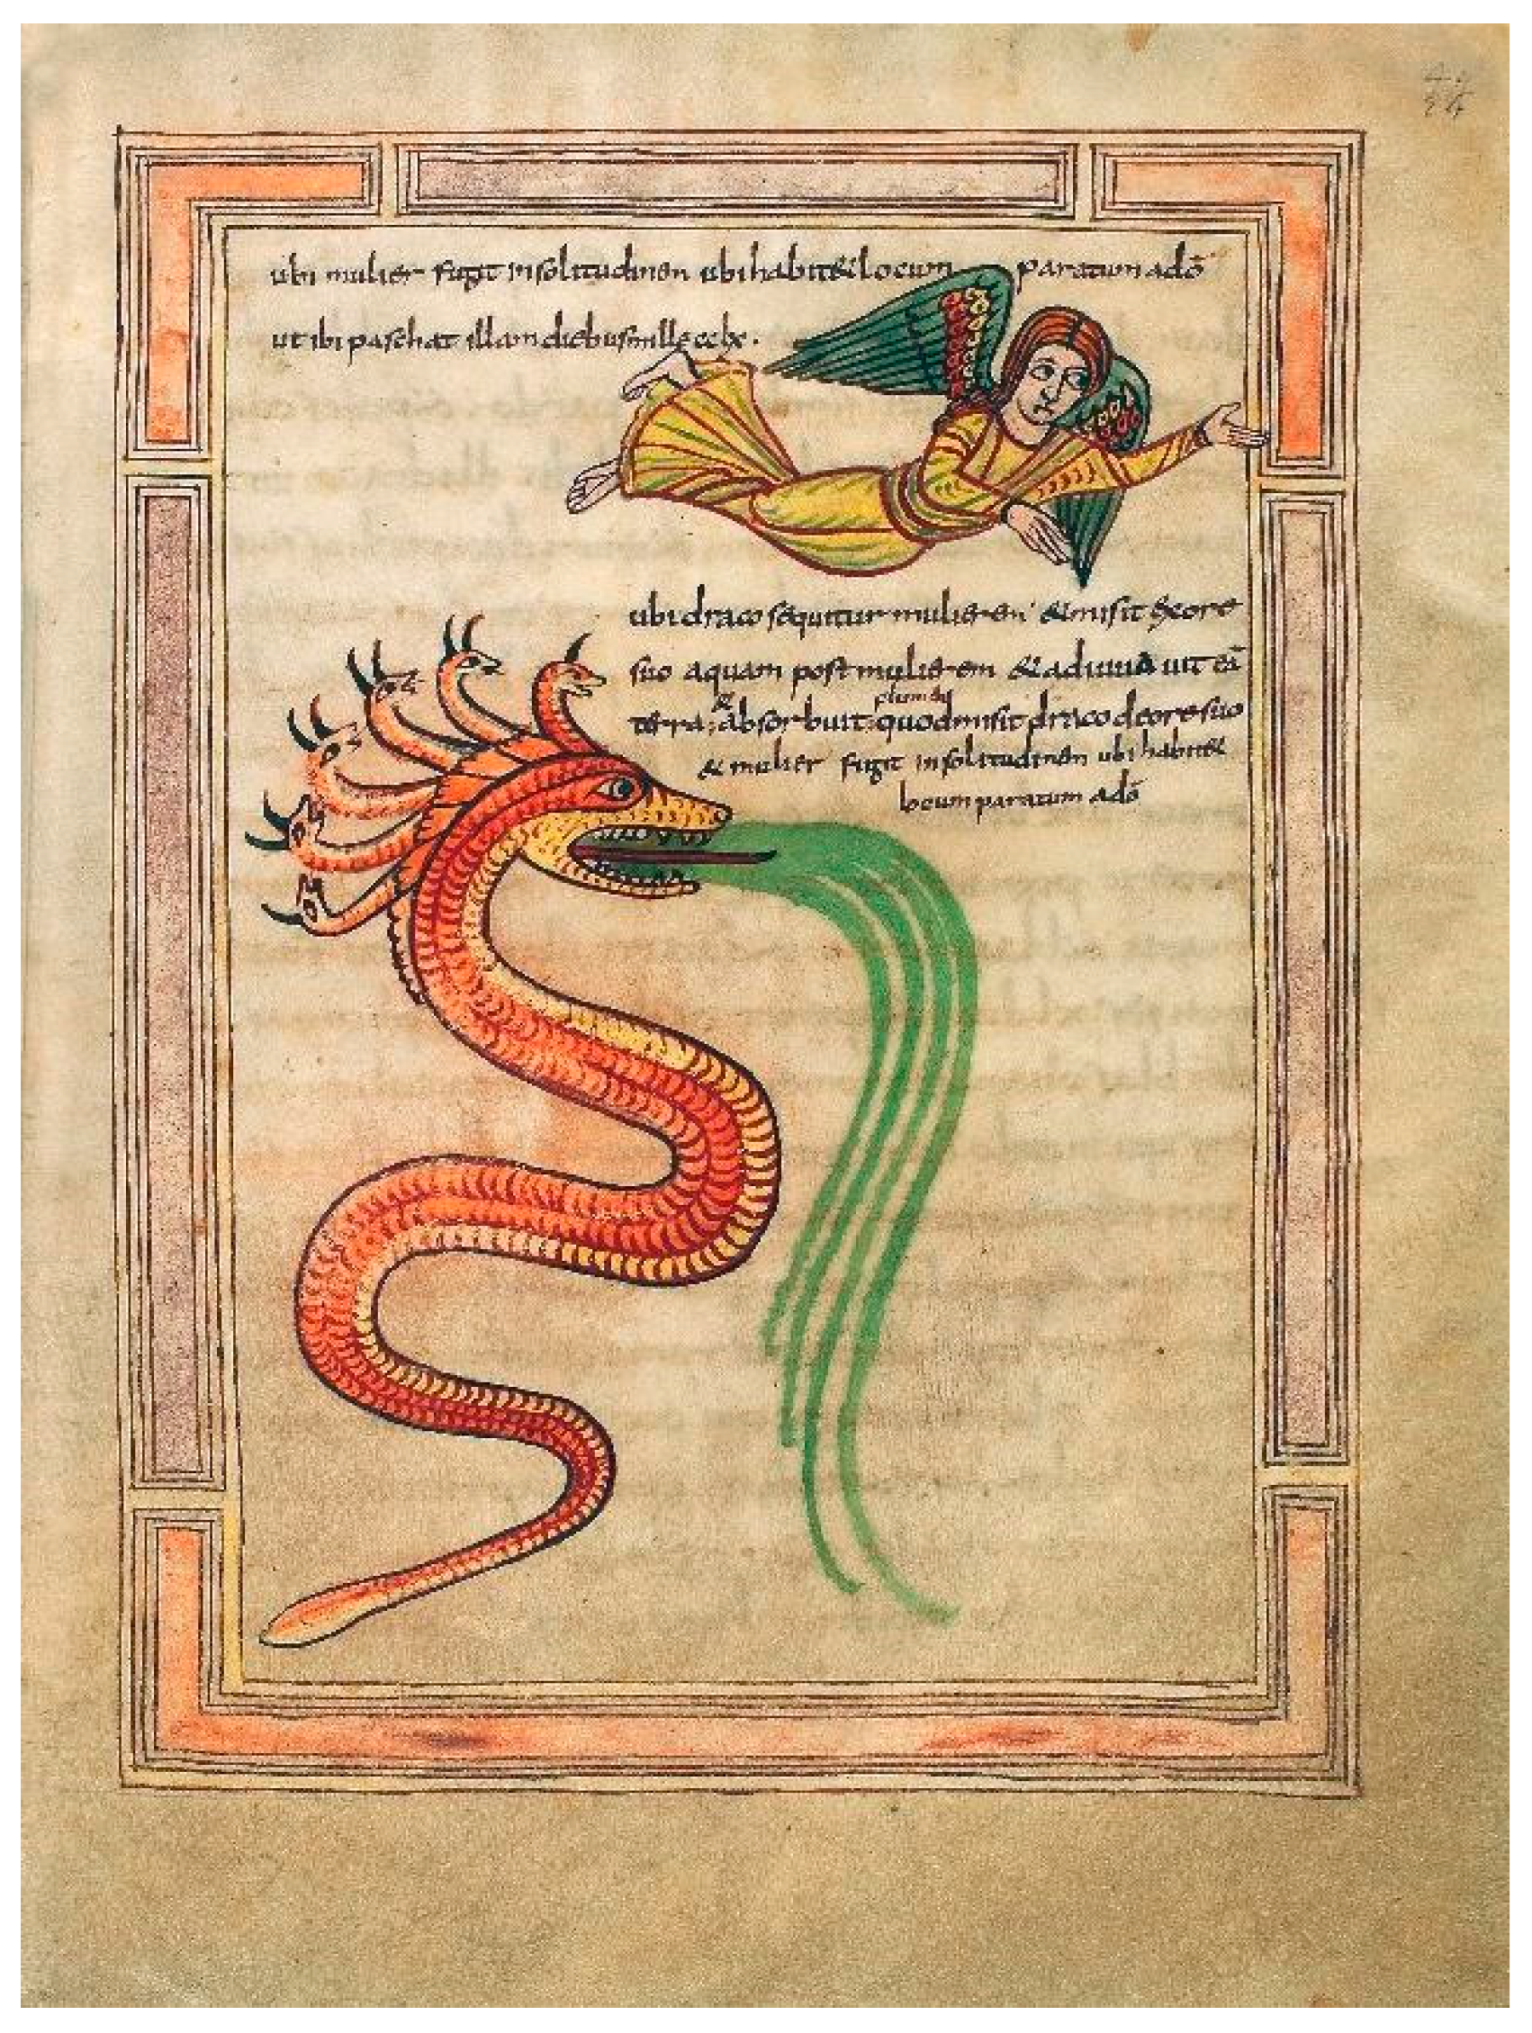 ubi mulier fugit in solitudinen ubi habitet locum paratum a dō
ut ibi paschat illam diebus mille cclx.
ubi draco sequitur mulierem & misit ex ore
suo aquam post mulierem & adiuuauit eā
terra; & absorbuit flumen quod misit draco de ore suo
& mulier fugit in solitudinem ubi habitet
locum paratum a dō